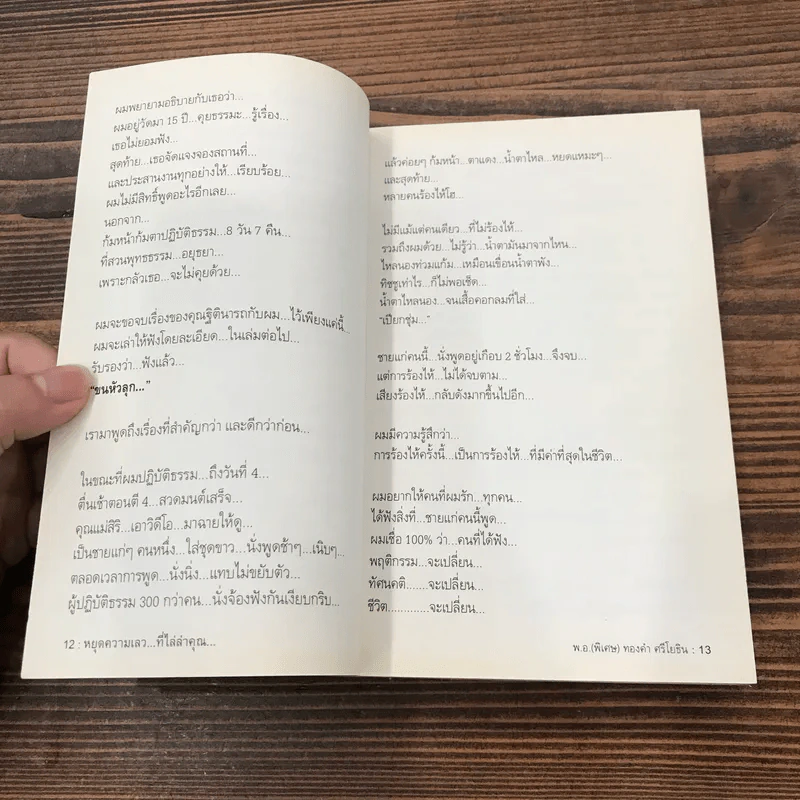 ผมพยายามอธิบายกับเธอว่า...
ผมอยู่วัดมา 15 ปี...คุยธรรมะ...รู้เรื่อง...
เธอไม่ยอมฟัง...
สุดท้าย...เธอจัดแจงจองสถานที่...
และประสานงานทุกอย่างให้...เรียบร้อย...
ผมไม่มีสิทธิ์พูดอะไรอีกเลย...
นอกจาก...
ก้มหน้าก้มตาปฏิบัติธรรม...8 วัน 7 คืน...
ที่สวนพุทธธรรม...อยุธยา...
เพราะกลัวเธอ...จะไม่คุยด้วย...
ผมจะขอจบเรื่องของคุณฐิตินารถกับผม...ไว้เพียงแค่นี้...
ผมจะเล่าให้ฟังโดยละเอียด...ในเล่มต่อไป...
รับรองว่า...ฟังแล้ว...
"ขนหัวลุก..."
เรามาพูดถึงเรื่องที่สำคัญกว่า และดีกว่าก่อน...
ในขณะที่ผมปฏิบัติธรรม...ถึงวันที่ 4...
ตื่นเช้าตอนตี 4...สวดมนต์เสร็จ...
คุณแม่สิริ...เอาวิดีโอ...มาฉายให้ดู...
เป็นชายแก่ๆ คนหนึ่ง...ใส่ชุดขาว...นั่งพูดช้าๆ...เนิบๆ...
ตลอดเวลาการพูด...นั่งนิ่ง...แทบไม่ขยับตัว...
ผู้ปฏิบัติธรรม 300 กว่าคน...นั่งจ้องฟังกันเงียบกริบ...
12 : หยุดความเลว...ที่ไล่ล่าคุณ...
แล้วค่อยๆ ก้มหน้า...ตาแดง...น้ำตาไหล...หยดแหมะๆ...
และสุดท้าย...
หลายคนร้องไห้โฮ...
ไม่มีแม้แต่คนเดียว...ที่ไม่ร้องไห้...
รวมถึงผมด้วย...ไม่รู้ว่า...น้ำตามันมาจากไหน...
ไหลนองท่วมแก้ม...เหมือนเขื่อนน้ำตาพัง...
ทิชชูเท่าไร...ก็ไม่พอเช็ด...
น้ำตาไหลนอง...จนเสื้อคอกลมที่ใส่...
"เปียกชุ่ม..."
ชายแก่คนนี้...นั่งพูดอยู่เกือบ 2 ชั่วโมง...จึงจบ...
แต่การร้องไห้...ไม่ได้จบตาม...
เสียงร้องไห้...กลับดังมากขึ้นไปอีก...
ผมมีความรู้สึกว่า...
การร้องไห้ครั้งนี้...เป็นการร้องไห้...ที่มีค่าที่สุดในชีวิต...
ผมอยากให้คนที่ผมรัก...ทุกคน...
ได้ฟังสิ่งที่...ชายแก่คนนี้พูด...
ผมเชื่อ 100% ว่า...คนที่ได้ฟัง...
พฤติกรรม...จะเปลี่ยน...
ทัศนคติ......จะเปลี่ยน...
ชีวิต............จะเปลี่ยน...
พ.อ.(พิเศษ) ทองคำ ศรีโยธิน : 13